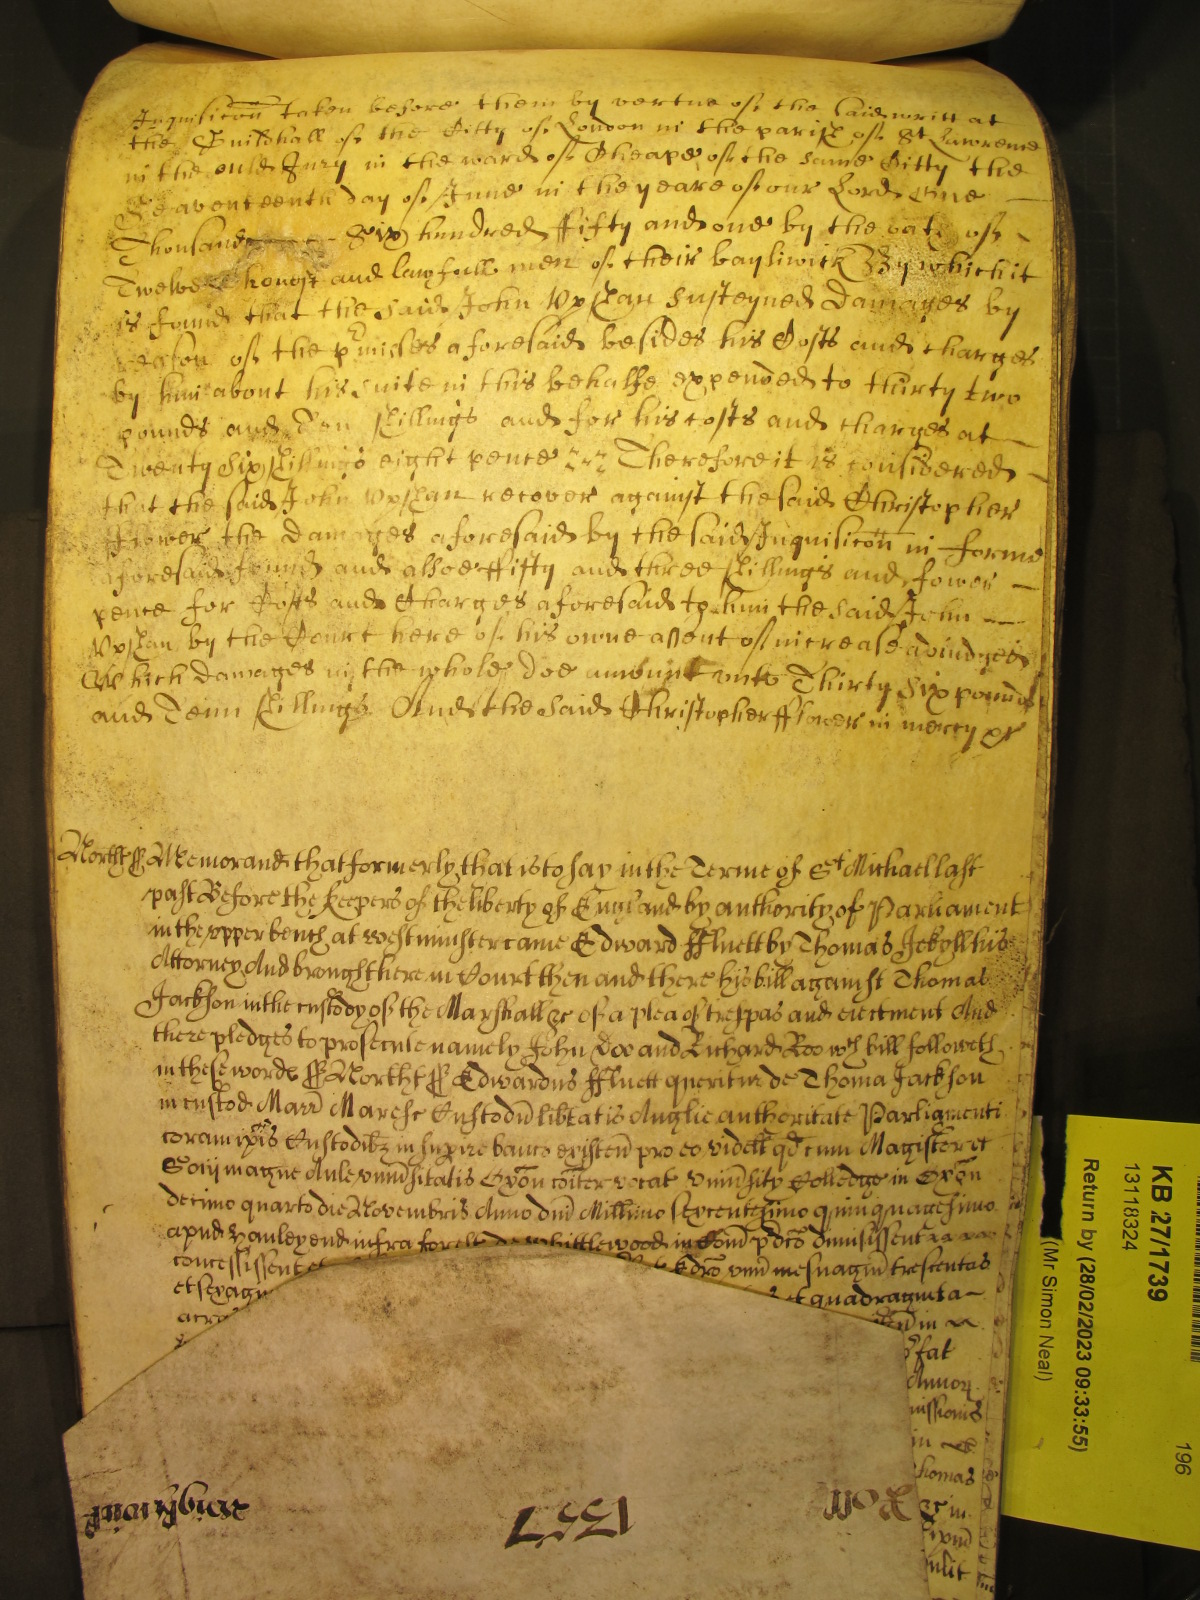 Inquisicōn taken before them by vertue of the said writt at
the Guildhall of the Citty of London in the parish of St Lawrence
in the ould Jury in the ward of Cheape of the same Citty the
Seaventeenth day of June in the yeare of our Lord One
Thousand Six hundred ffifty and one by the oath of
Twelve honest and lawfull men of their bayliwick By which it
is found that the said John Upshan susteyned damages by
reason of the p̱misses aforesaid besides his Costs and charges
by him about his suite in this behalfe expended to thirty two
pounds and Ten shillings and for his costs and charges at
Twenty six shillings eight pence Therefore it is considered
that the said John Upshan recover against the said Christopher
fflower the damages aforesaid by the said Inquisicōn in forme
aforesaid found and alsoe ffifty and three shillings and fower
pence for Costs and Charges aforesaid to him the said John
Upshan by the Court here of his owne assent of increase adiudged
Which damages in the whole doe amount unto Thirty six pounds
and Tenn shillings And the said Christopher fflower in mercy &c
Northt ss Memorand that formerly that is to say in the Terme of St Michaell last
past Before the keepers of the liberty of England by authority of Parliament
in the upper bench at Westminster came Edward ffluett by Thomas Jekyll his
Attorney And brought here in Court then and there his bill against Thomas
Jackson in the custody of the Marshall &c of a plea of trespas and eiectment And
there pledges to prosecute namely John Doe and Richard Roo wch bill followeth
in these words ss Northt ss Edwardus ffluett queritur de Thoma Jackson
in custod Marr Maresc Custodū libtatis Anglie authoritate Parliamenti
coram ipis Custodibz in supiore banco existen pro eo videlt qd cum Magister et
Socij magne Aule univsitatis Oxon coiter vocat Univsity Colledge in Oxon
decimo quarto die Novembris Anno dni Millimo sexcentesimo quinquagesimo
apud Hanley end infra forest de Whittlewood in Com p̱dco dimisissent
concessissent et Edro unū mesuagiū trescentas
et sexagin et quadraginta
acr in
p̱fat
Annor
missionis
in
Thomas
&c in
KB 27/1739
13118324
Return by (28/02/2023 09:33:55)
(Mr Simon Neal)
196
1557
Roll